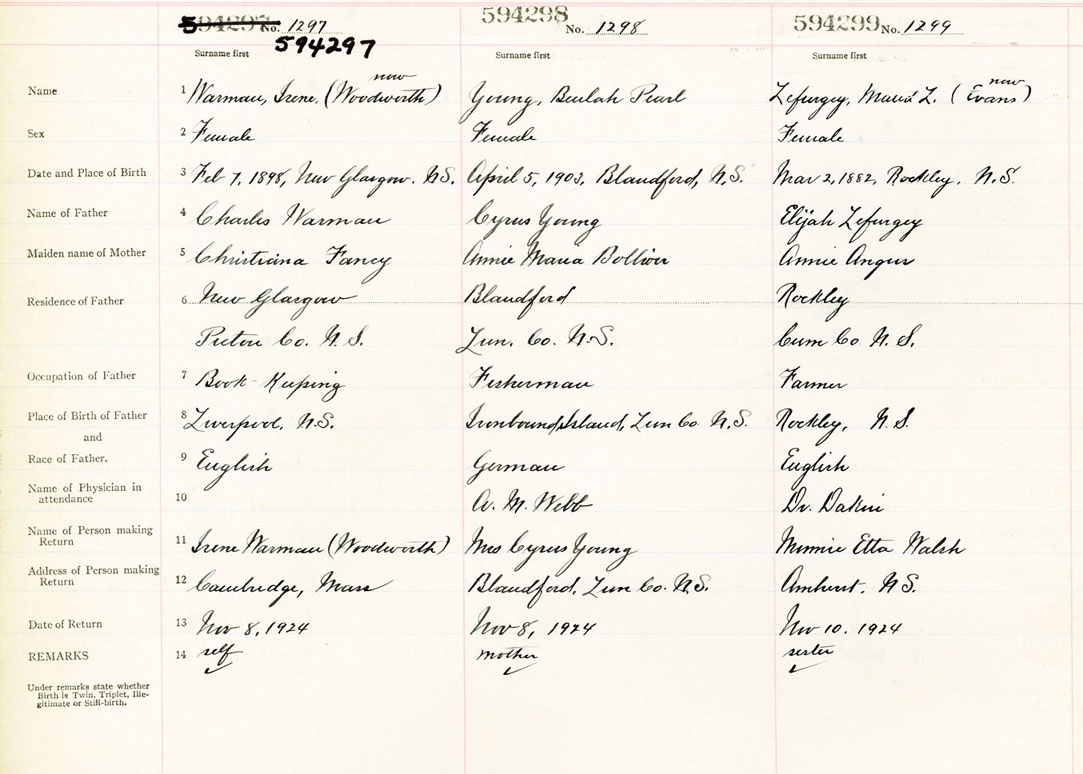 594297 No. 1297 594298 No. 1298 594299 No. 1299
594297
Surname first Surname first Surname first
now now
Name 1 Warman, Irene, (Woodworth) Young, Beulah Pearl Lefurgey, Maria L. (Evans)
Sex 2 Female Female Female
Date and Place of Birth 3 Feb 7, 1898, New Glasgow. N.S. April 5, 1903, Blandford, N.S. Mar 2, 1882, Rockley, N.S.
Name of Father 4 Charles Warman Cyrus Young Elijah Lefurgey
Maiden name of Mother 5 Christiana Fancy Annie Maria Bollivir Annie Angus
Residence of Father 6 New Glasgow Blandford Rockley
Pictou Co. N.S. Lun. Co. N.S. Cum Co N.S.
Occupation of Father 7 Book-Keeping Fisherman Farmer
Place of Birth of Father 8 Liverpool, N.S. Ironbound Island, Lun Co. N.S. Rockley, N.S
and
Race of Father. 9 English German English
Name of Physician in
attendance 10 A. M. Webb Dr. Dakin
Name of Person making
Return 11 Irene Warman (Woodworth) Mrs Cyrus Young Minnie Etta Walsh
Address of Person making
Return 12 Cambridge, Mass Blandford, Lun Co. N.S. Amherst, N.S.
Date of Return 13 Nov 8, 1924 Nov 8, 1924 Nov 10. 1924
REMARKS 14 self mother sister
Under remarks state whether
Birth is Twin, Triplet, Ille-
gitimate or Still-birth.